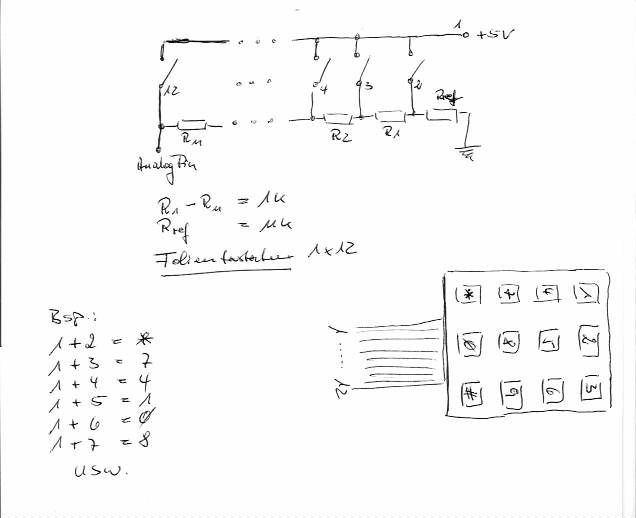 1
+5V
12
4
3
2
R11
R2
R1
Rref
AnalogPin
R1 - R11 = 1k
Rref = 11k
Folientastatur 1x12
Bsp.:
1 + 2 = *
1 + 3 = 7
1 + 4 = 4
1 + 5 = 1
1 + 6 = 0
1 + 7 = 8
usw.
1
12
* 7 4 1
0 8 5 2
# 9 6 3